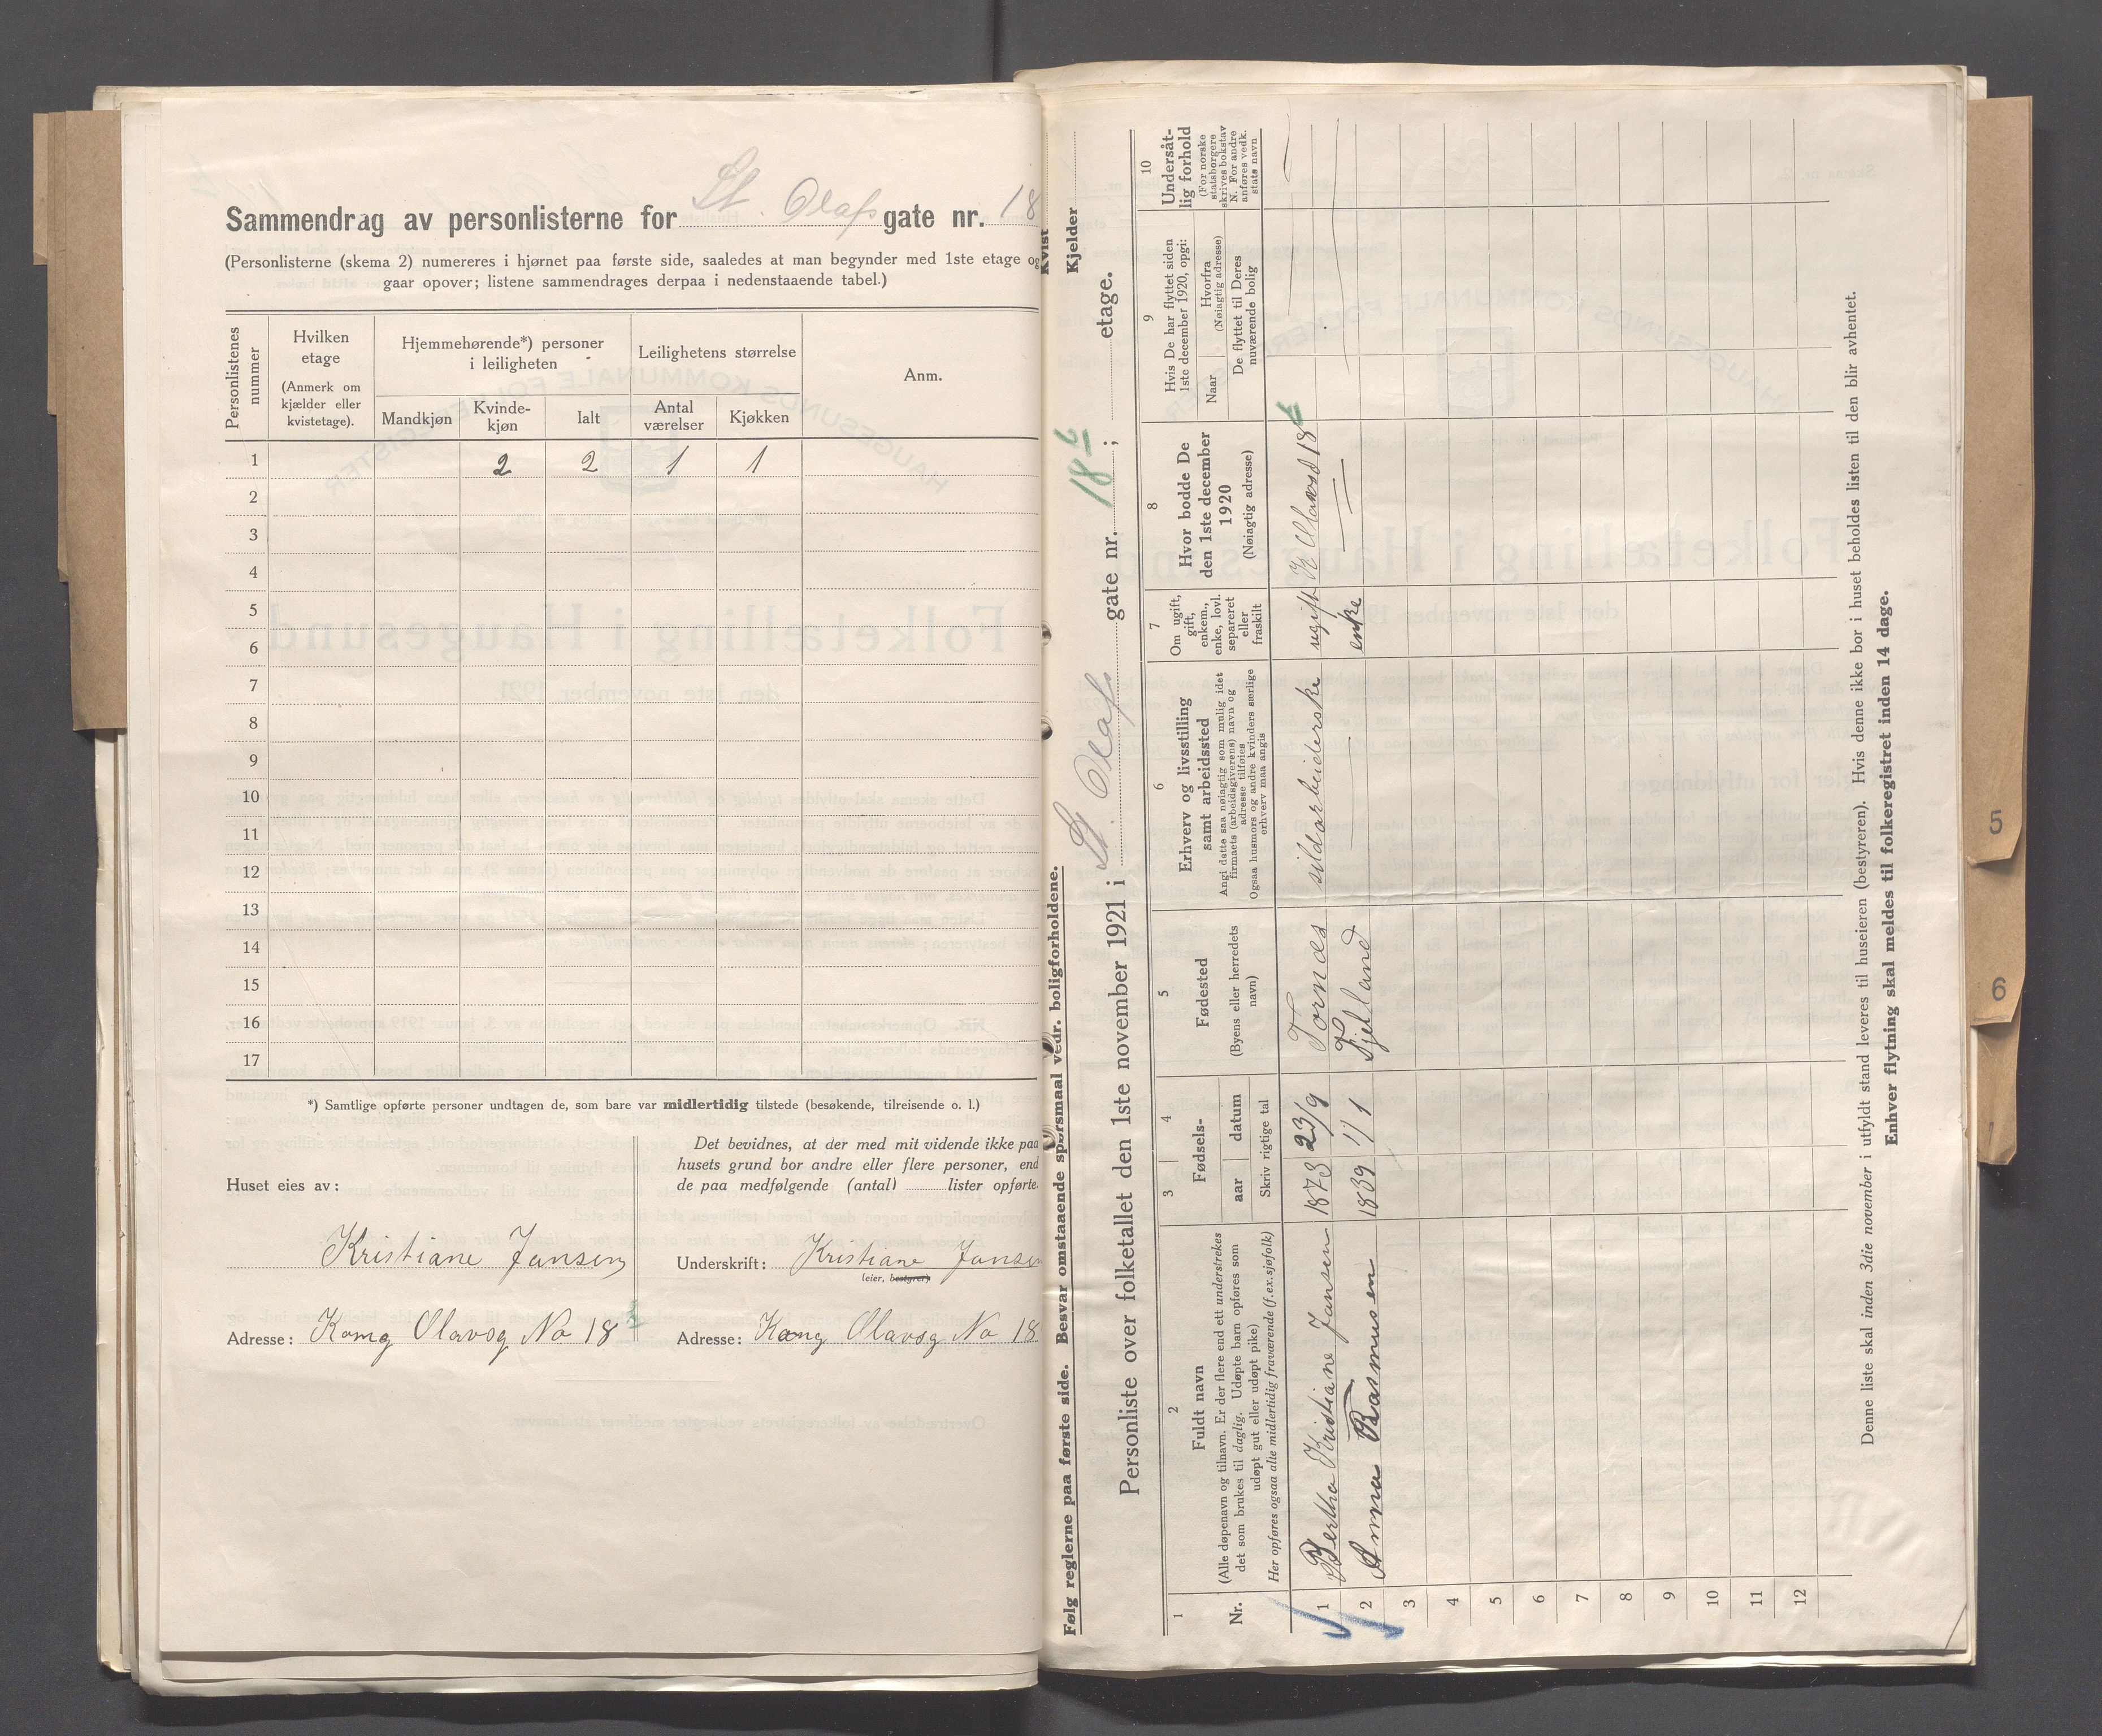 Sammendrag av personlisterne for St. Olafs gate nr. 18
(Personlisterne (skema 2) numereres i hjørnet paa første side, saaledes at man begynder med 1ste etage og
gaar opover; listene sammendrages derpaa i nedenstaaende tabel.)
Personlistenes nummer
Hvilken etage
(Anmerk om kjælder eller kvistetage).
Hjemmehørende*) personer i leiligheten
Leilighetens størrelse
Anm.
Mandkjøn
Kvinde-kjøn
Ialt
Antal værelser
Kjøkken
1 2 2 1 1
2
3
4
5
6
7
8
9
10
11
12
13
14
15
16
17
*) Samtlige opførte personer undtagen de, som bare var midlertidig tilstede (besøkende, tilreisende o. l.)
Huset eies av:
Kristiane Jansen
Adresse: Kong Olavsg No 18
Det bevidnes, at der med mit vidende ikke paa
husets grund bor andre eller flere personer, end
de paa medfølgende (antal) lister opførte.
Underskrift: Kristiane Jansen
(eier, bestyrer)
Adresse: Kong Olavsg No 18
Følg reglerne paa første side. Besvar omstaaende spørsmaal vedr. boligforholdene.
Kvist
Kjelder
Personliste over folketallet den 1ste november 1921 i St. Olafs gate nr. 18 ; etage.
1
Nr.
2
Fuldt navn
(Alle døpenavn og tilnavn. Er der flere end ett understrekes
det som brukes til daglig. Udøpte barn opføres som
udøpt gut eller udøpt pike)
Her opføres ogsaa alle midlertidig fraværende (f.ex.sjøfolk)
3 4
Fødsels-
aar datum
Skriv rigtige tal
5
Fødested
(Byens eller herredets
navn)
6
Erhverv og livsstilling
samt arbeidssted
Angi dette saa nøiagtig som mulig idet
firmaets (arbeidsgiverens) navn og
adresse tilføies
Ogsaa husmors og andre kvinders særlige
erhverv maa angis
7
Om ugift,
gift,
enkem.,
enke, lovl.
separeret
eller
fraskilt
8
Hvor bodde De
den 1ste december
1920
(Nøiagtig adresse)
9
Hvis De har flyttet siden
1ste december 1920, opgi:
Naar
Hvorfra
(Nøiagtig adresse)
De flyttet til Deres
nuværende bolig
10
Undersåt-
lig forhold
(For norske
statsborgere
skrives bokstav
N. For andre
anføres vedk.
stats navn
1 Bertha Kristiane Jansen 1873 23/9 Tornes sildarbeiderske ugift K Olavsd 18
2 Anna Rasmusen 1839 1/1 Fjelland — enke —
3
4
5
6
7
8
9
10
11
12
Denne liste skal inden 3die november i utfyldt stand leveres til huseieren (bestyreren). Hvis denne ikke bor i huset beholdes listen til den blir avhentet.
Enhver flytning skal meldes til folkeregistret inden 14 dage.
5
6